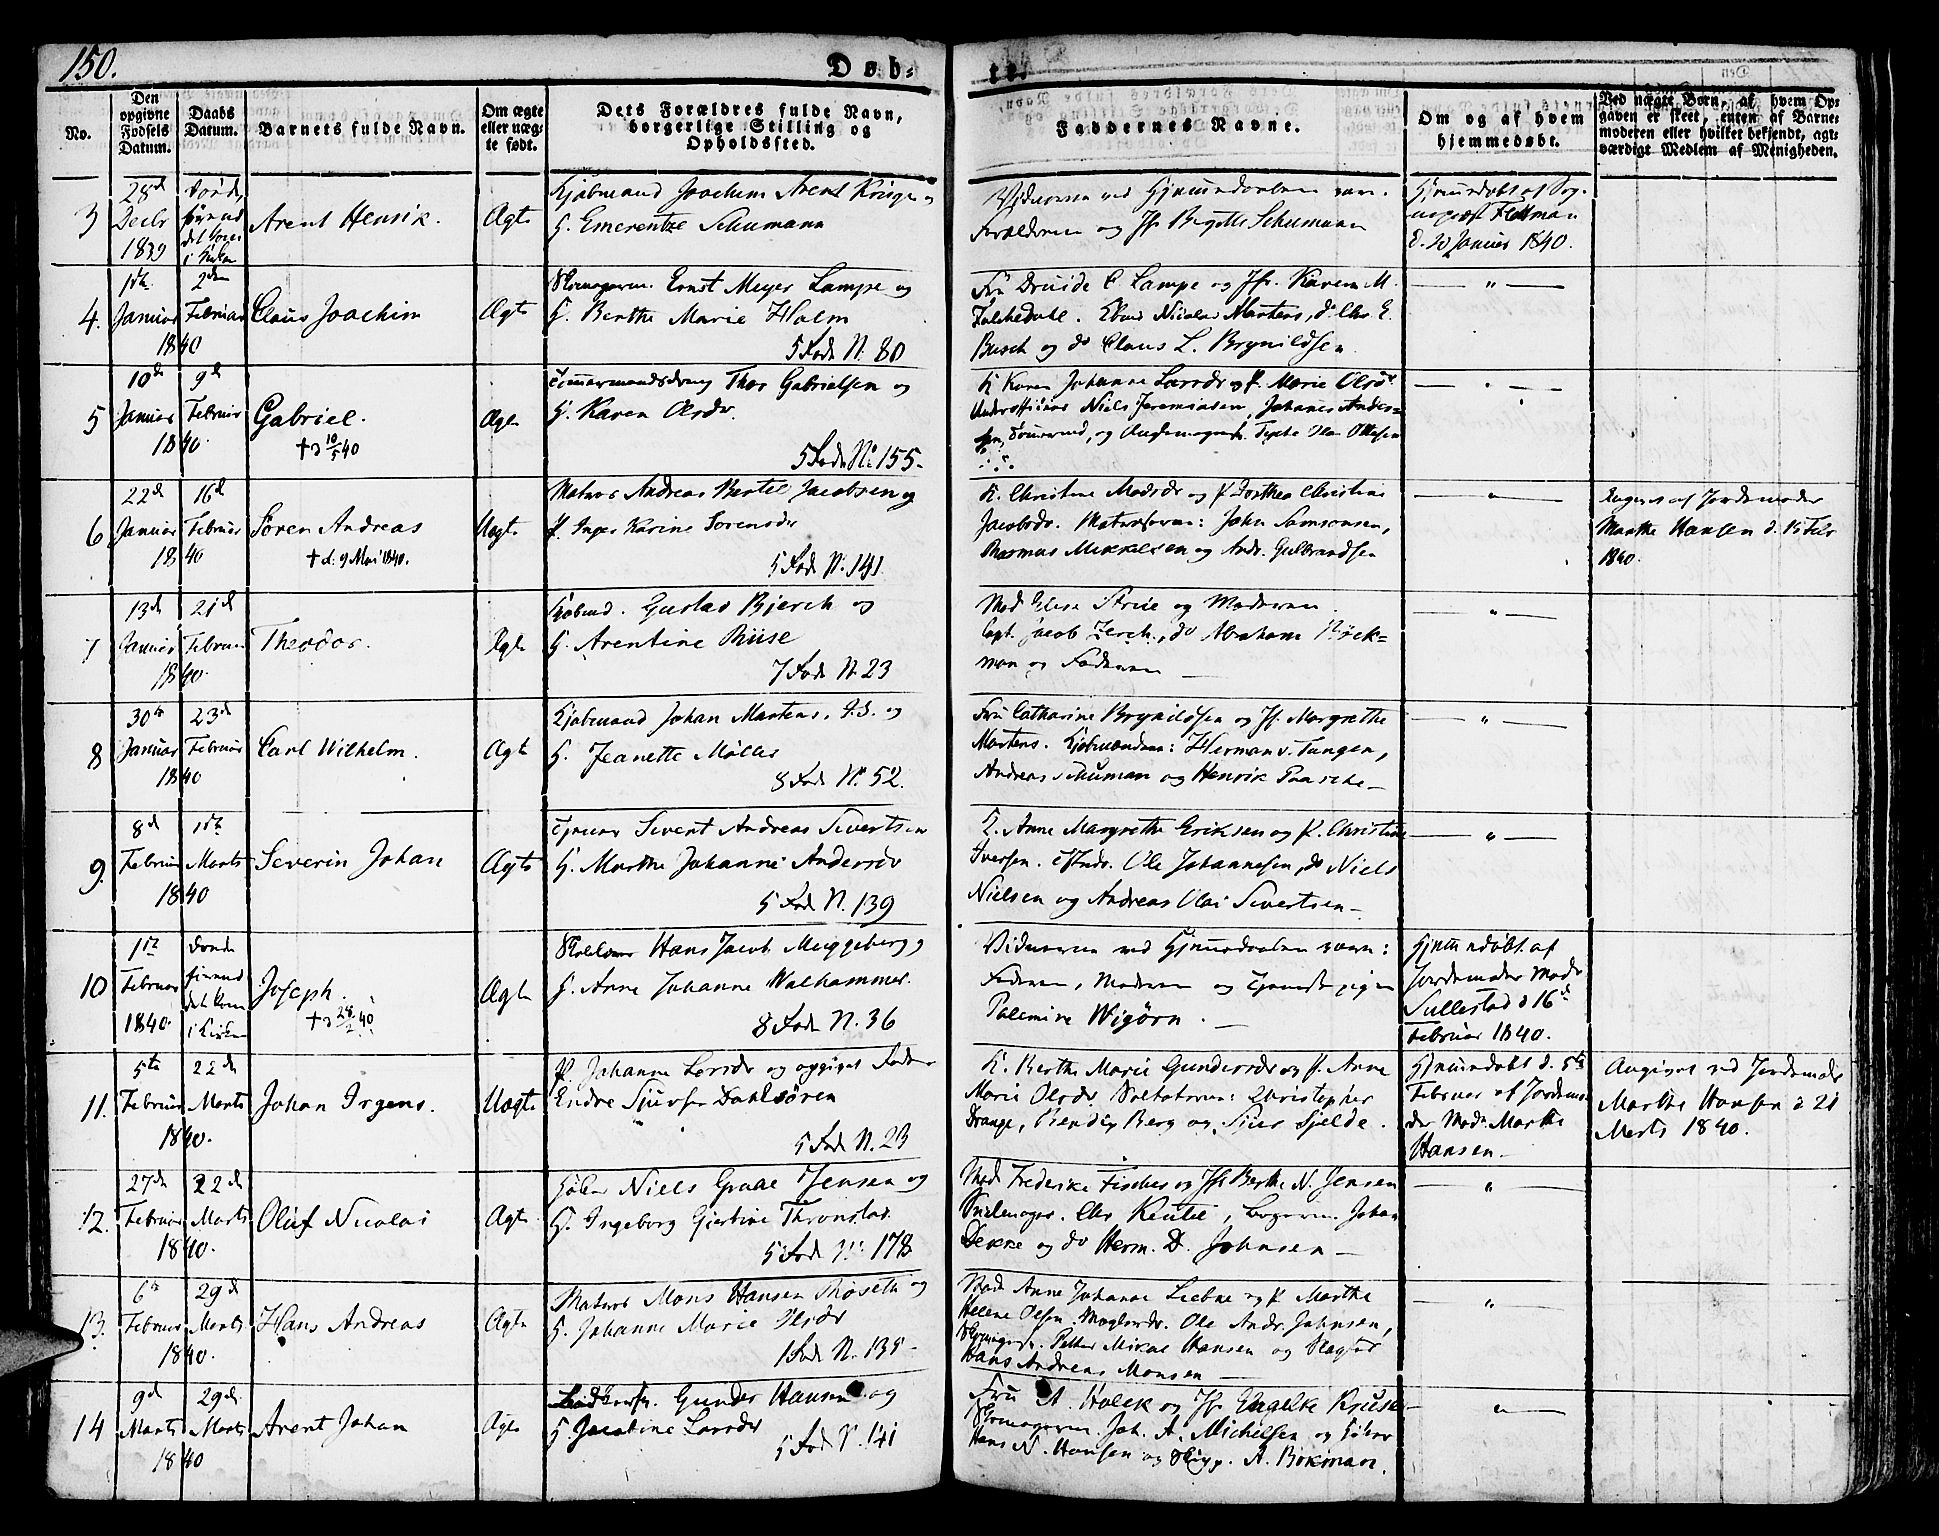 150.
Døb-
te.
No.
Den opgivne Fødsels Datum.
Daabs Datum.
Barnets fulde Navn.
Om ægte eller næg- te født.
Dets Forældres fulde Navn, borgerlige Stilling og Opholdssted.
Faddernes Navne.
Om og af hvem hjemmedøbt.
Ved uægte Børn, af hvem Op-
gaven er skeet, enten af Barne-
moderen eller hvilket bekjendt, agt-
værdigt Medlem af Menigheden.
3
28d
Decbr
1839
Arent Henrik.
Ægte
Kjøbmand Joachim Arent Krüger og
H. Emerentze Schumann
Forældrene og Jfr Birgitte Schumann
Hjemmedøbt af Sog-
nepræst Flottman
d. 20 Januar 1840.
4.
Januar
1840
2den
Februar
Claus Joachim
Ægte
Skomagerm. Ernst Meyer Lampe og
H. Berthe Marie Holm
5 Fode N. 80
Fru Druide C. Lampe og Jfr. Karen M.
Falchedahl. Nicolai Martens, do Chr. E.
Busch og do Claus L. Brynildsen
5
10de
Januar
1840.
9d
Februar
Gabriel.
† d 10/5 40
Ægte
Tømmermandsdreng Thor Gabrielsen og
H. Karen Olsdr.
5 Fode No 155-
K. Karen Johanne Larsdr og P. Marie Olsdr
Underofficier Niels Jeremiasen, Johannes Ander-
6
22d
Januar
1840
16d
Februar
Søren Andreas
† d: 9 Mai 1840.
Uægte
Matros Andreas Bertel Jacobsen og
P. Inger Karine Sørensdr
5 Fode N. 141
K. Christine Madsdr og P. Dorthea Christine
Jacobsdr. Matroserne: John Samsonsen,
Rasmus Mikkelsen og Andr. Gulbrandsen
Angivet af Jordemoder
Marthe Hansen d. 15 Febr
1840.
7
13d
Januar
1840.
21d
Februar
Theodor.
Ægte
Kjøbmd. Gustav Bjerck og
H. Arentine Buse
7 Fode N. 23
Mad Elise Strie og Moderen.
Capt. Jacob Lerch, do Abraham Bøck-
man og Faderen
8
30te
Januar
1840
23d
Februar
Carl Wilhelm.
Ægte
Kjøbmand Johan Martens, J.S. og
H. Jeanette Møller
8 Fode No. 52.
Fru Catharine Brynildsen og Jfr. Margrethe
Martens. Kjøbmændene: Herman v. Tangen,
Andreas Schuman og Henrik Paasche
9.
8d
Februar
1840
1ste
Marts
Severin Johan
Ægte
Tjener Sivert Andreas Sivertsen
H. Marthe Johanne Andersdr
5 Fode N. 139
K. Anne Margrethe Eriksen og P. Christine
Iversen. Ole Johannesen, do Niels
Nielsen og Andreas Olai Sivertsen
10
1ste
Februar
1840.
Joseph.
† d 28/2 40
Ægte
Hans Jacob Muggeberg og
H. Anne Johanne Walhammer.
8 Fode N. 36
Vidnerne ved Hjemmedaaben vare:
Faderen, Moderen og Tjenestepigen
Palemine Wigørn.
Hjemmedøbt af
Jordemoder Mads
Sullestad d 16d
Februar 1840.
11.
5te
Februar
1840.
22d
Marts
Johan Irgens.
Uægte
P. Johanne Larsdr og opgivet Fader
Endre Sjursen Dahlsøren
5 Fode N. 23
K. Berthe Marie Gundersdr og P. Anne
Marie Olsdr. Soldaterne: Christopher
Drange, Bendix Berg og Siur Sjelde.
Hjemmedøbt d. 5te
Februar af Jordemo-
der Mad. Marthe
Hansen.
Angivet ved Jordemoder
Marthe Hansen d 21
Marts 1840.
12.
27de
Februar
1840.
22d
Marts
Oluf Nicolai
Ægte.
Niels Grave Jensen og
H. Ingeborg Gjertine Thronstad
5 Fode No 178
Mad Frederike Fischer og Jfr Berthe N. Jensen
Chr Reutz, Bagerm. Johan
Dekke og do Herm. D. Johnsen
13.
6te
Februar
1840.
29d
Marts
Hans Andreas
Ægte
Matros Mons Hansen Røseth og
H. Johanne Marie Olsdr
1 Fode N. 135
Mad Anne Johanne Liebne og P. Marthe
Helene Olsen. Ole Andr. Johnsen,
Petter Mikal Hansen og
Hans Andreas Monsen
14
9d
Marts
1840
29d.
Marts
Arent Johan
Ægte
Gunder Hansen og
H. Jacobine Larsdr
5 Fode N. 141
Fru A. Holck og Jfr Engelke Kruse
Skomagerm. Joh. A. Michelsen og
Hans N. Hansen og A. Bøkman.